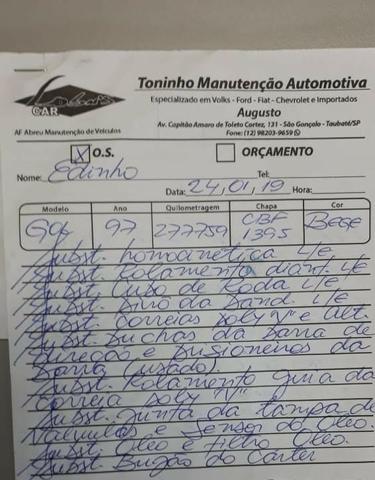 Toninho Manutenção Automotiva
Especializado em Volks - Ford - Fiat - Chevrolet e Importados
Augusto
CAR
Av. Capitão Amaro de Toleto Cortez, 131 - São Gonçalo - Taubaté/SP
AF Abreu Manutenção de Veículos
Fone: (12) 98203-9659
X O.S. ORÇAMENTO
Nome: Edinho Tel:
Data: 24/01/19 Hora:
Modelo Ano Quilometragem Chapa Cor
Gol 97 277759 CBF 1395 Bege
Subst. homocinetica L/E
Subst. Rolamento diant. L/E
Subst. Cubo de Roda L/E
Subst. Pivo da Band. L/E
Subst. Correias Poly "V" e Alt.
Subst. Buchas da Barra de
Direção e Prisioneiros da
Barra (usado).
Subst. Rolamento guia da
Correia Poly "V"
Subst. Junta da tampa de
Valvulas e Sensor do Oleo.
Subst. Oleo e Filtro Oleo.
Subst. Bujão do Carter